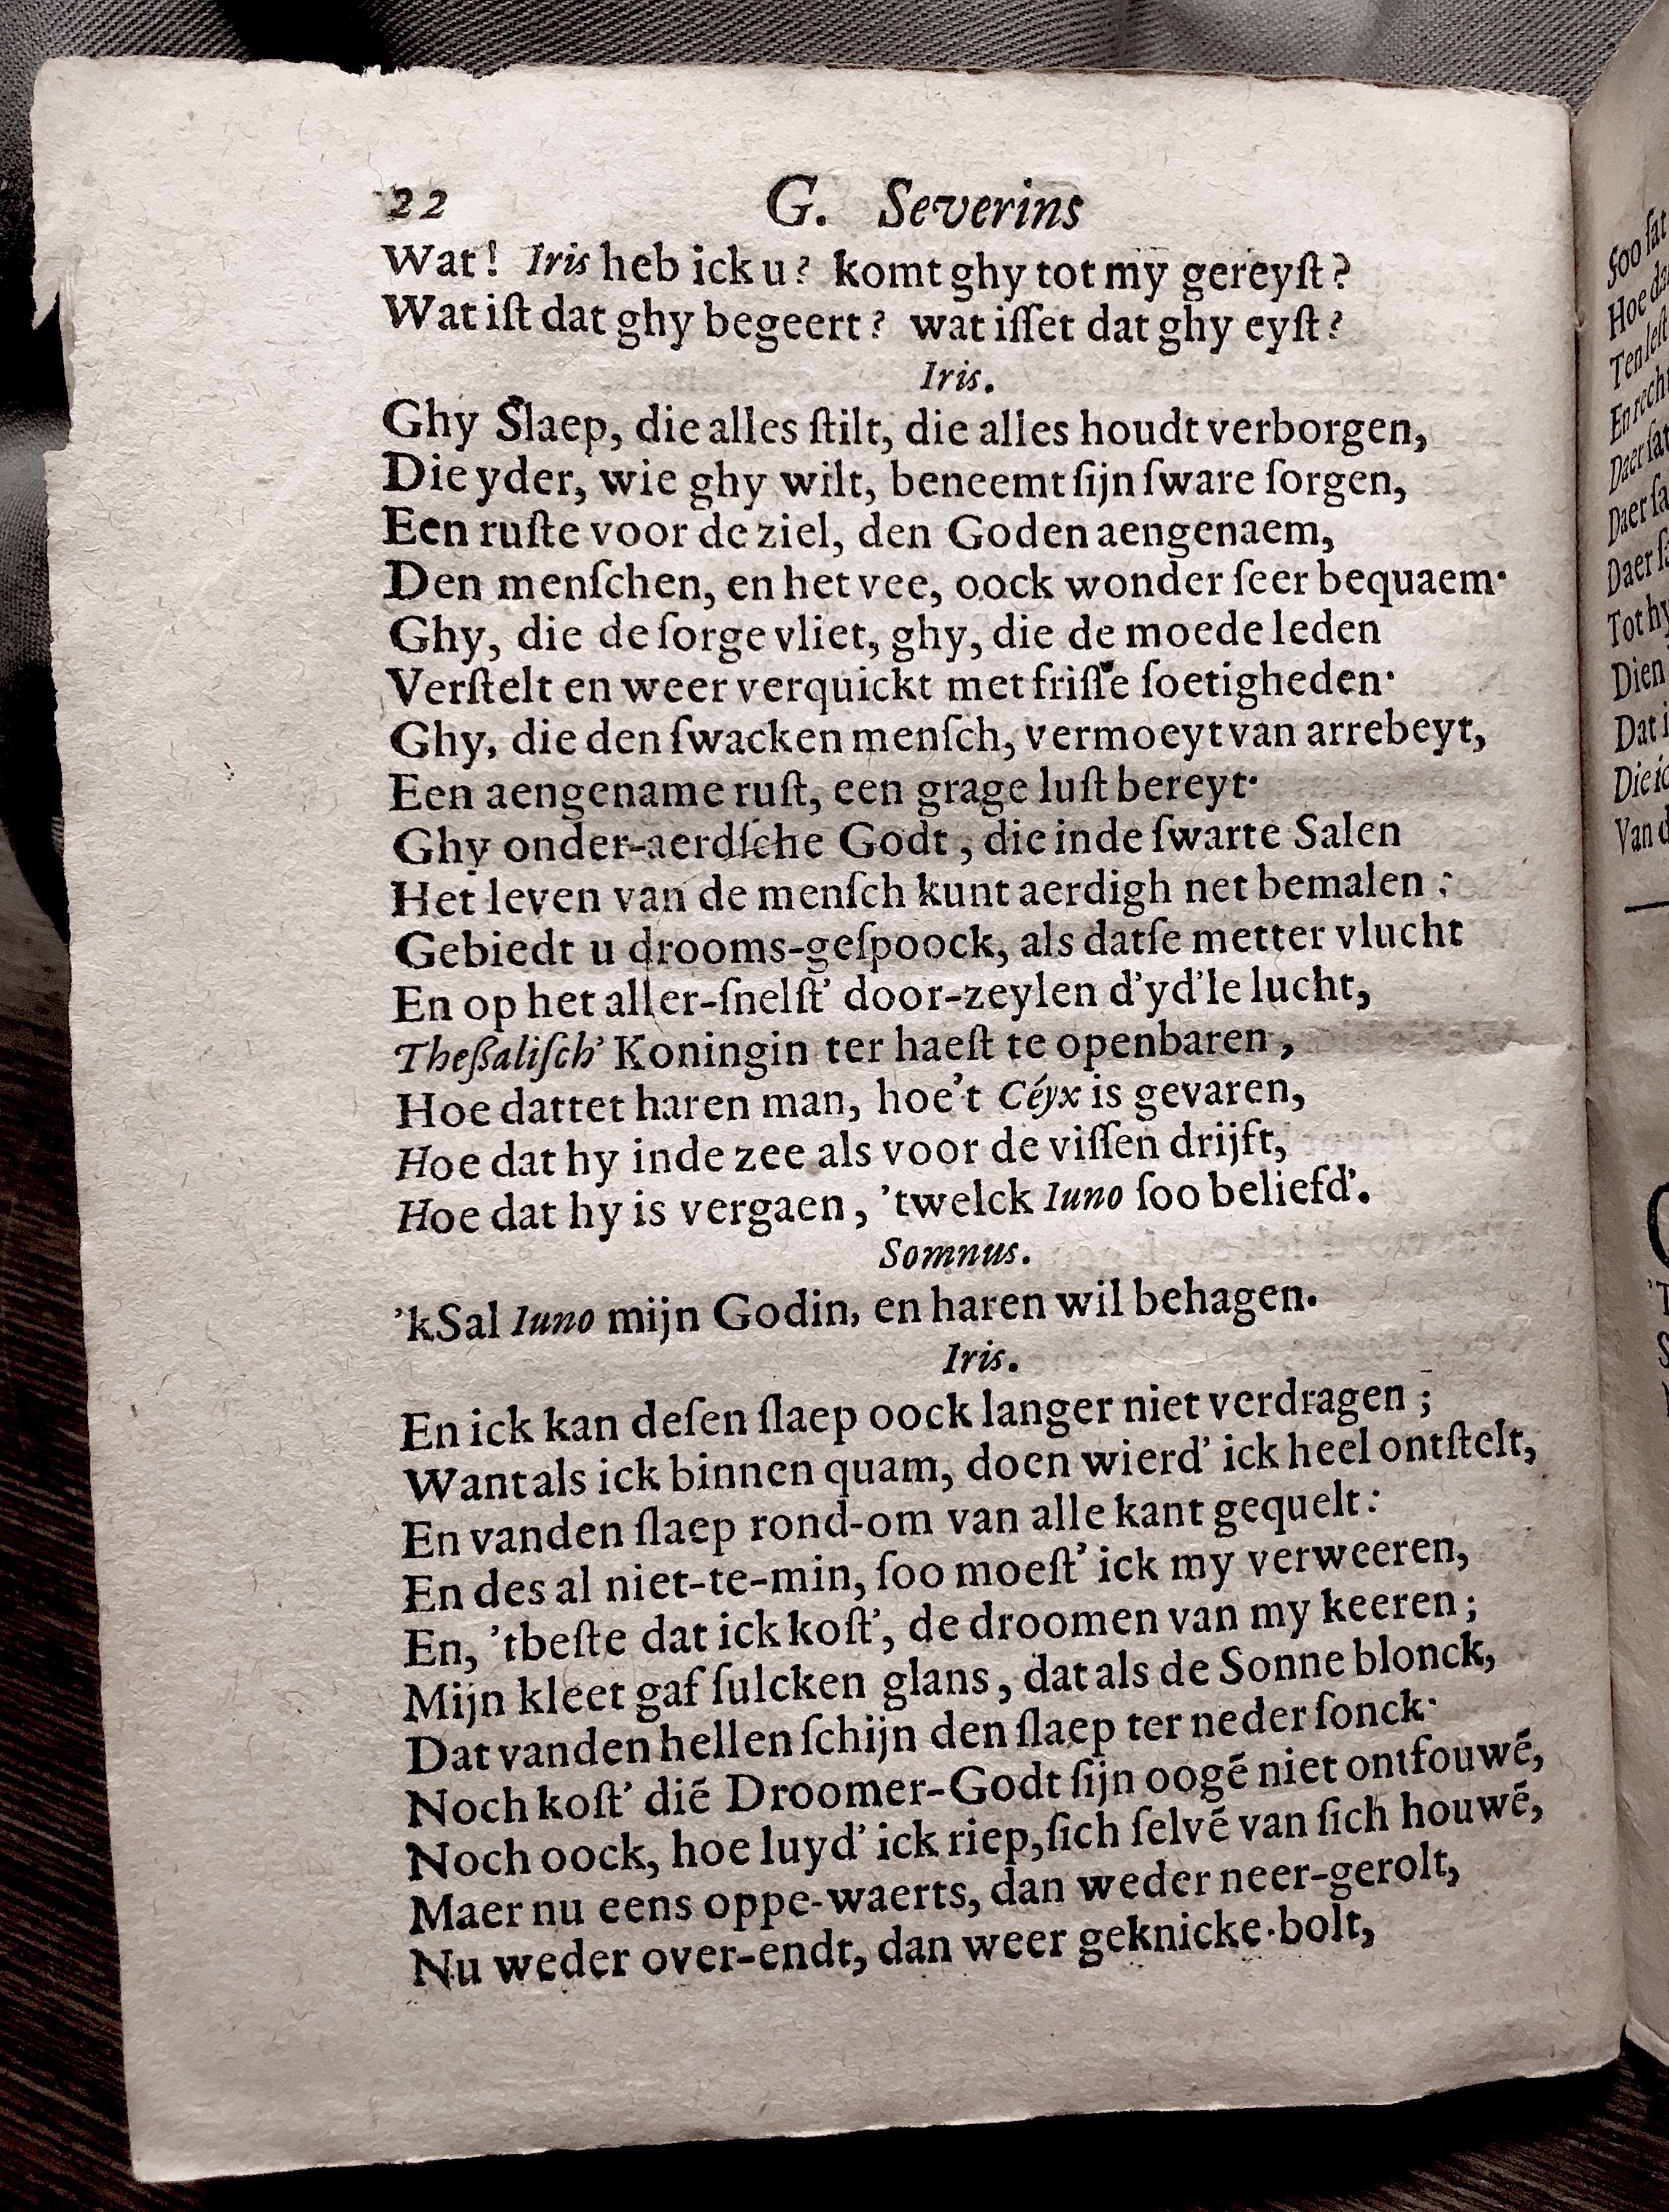 22 G. Severins
Wat! Iris heb ick u? komt ghy tot my gereyſt?
Wat iſt dat ghy begeert? wat iſſet dat ghy eyſt?
Iris.
Ghy Slaep, die alles ſtilt, die alles houdt verborgen,
Die yder, wie ghy wilt, beneemt ſijn ſware ſorgen,
Een ruſte voor de ziel, den Goden aengenaem,
Den menſchen, en het vee, oock wonder ſeer bequaem·
Ghy, die de ſorge vliet, ghy, die de moede leden
Verſtelt en weer verquickt met friſſe ſoetigheden·
Ghy, die den ſwacken menſch, vermoeyt van arrebeyt,
Een aengename ruſt, een grage luſt bereyt·
Ghy onder-aerdſche Godt, die inde ſwarte Salen
Het leven van de menſch kunt aerdigh net bemalen:
Gebiedt u drooms-geſpoock, als datſe metter vlucht
En op het aller-ſnelſt' door-zeylen d'yd'le lucht,
Theſſaliſch' Koningin ter haeſt te openbaren,
Hoe dattet haren man, hoe't Céyx is gevaren,
Hoe dat hy inde zee als voor de viſſen drijft,
Hoe dat hy is vergaen, 'twelck Iuno ſoo beliefd'.
Somnus.
'kSal Iuno mijn Godin, en haren wil behagen.
Iris.
En ick kan deſen ſlaep oock langer niet verdragen;
Want als ick binnen quam, doen wierd' ick heel ontſtelt,
En vanden ſlaep rond-om van alle kant gequelt:
En des al niet-te-min, ſoo moeſt' ick my verweeren,
En, 'tbeſte dat ick koſt', de droomen van my keeren;
Mijn kleet gaf ſulcken glans, dat als de Sonne blonck,
Dat vanden hellen ſchijn den ſlaep ter neder ſonck·
Noch koſt' diē Droomer-Godt ſijn oogē niet ontfouwē,
Noch oock, hoe luyd' ick riep, ſich ſelvē van ſich houwē,
Maer nu eens oppe-waerts, dan weder neer-gerolt,
Nu weder over-endt, dan weer geknicke-bolt,